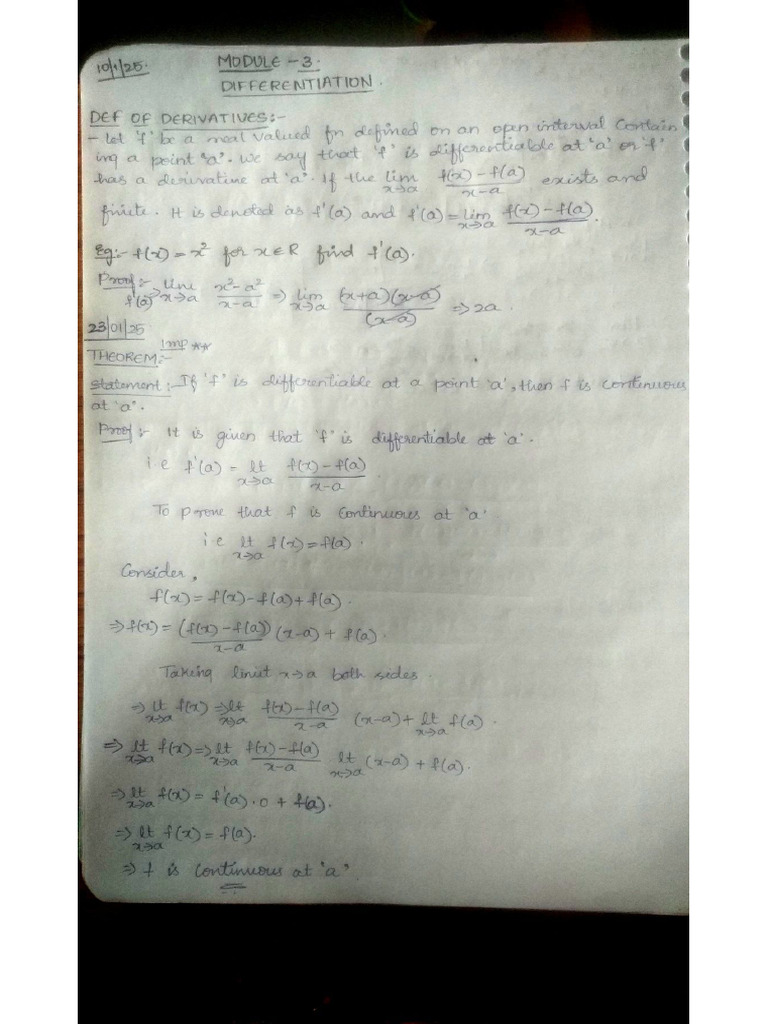 10/1/25.
MODULE - 3.
DIFFERENTIATION.
DEF OF DERIVATIVES:-
- Let 'f' be a real valued fn defined on an open interval contain
ing a point 'a'. We say that 'f' is differentiable at 'a' or 'f'
has a derivative at 'a'. If the lim x→a (f(x) - f(a))/(x-a) exists and
finite. It is denoted as f'(a) and f'(a) = lim x→a (f(x) - f(a))/(x-a).
Eg:- f(x) = x² for x ∈ R find f'(a).
Proof:- f'(a) ⇒ lim x→a (x²-a²)/(x-a) ⇒ lim x→a (x+a)(x-a)/(x-a) ⇒ 2a.
23/01/25
THEOREM:- Imp **
Statement:- If 'f' is differentiable at a point 'a', then f is continuous
at 'a'.
Proof:- It is given that 'f' is differentiable at 'a'.
i.e f'(a) = lt x→a (f(x) - f(a))/(x-a).
To prove that f is continuous at 'a'
i.e lt x→a f(x) = f(a).
Consider,
f(x) = f(x) - f(a) + f(a).
⇒ f(x) = (f(x) - f(a))/(x-a) (x-a) + f(a).
Taking limit x→a both sides.
⇒ lt x→a f(x) ⇒ lt x→a (f(x) - f(a))/(x-a) (x-a) + lt x→a f(a).
⇒ lt x→a f(x) ⇒ lt x→a (f(x) - f(a))/(x-a) lt x→a (x-a) + f(a).
⇒ lt x→a f(x) = f'(a) · 0 + f(a).
⇒ lt x→a f(x) = f(a).
⇒ f is continuous at 'a'